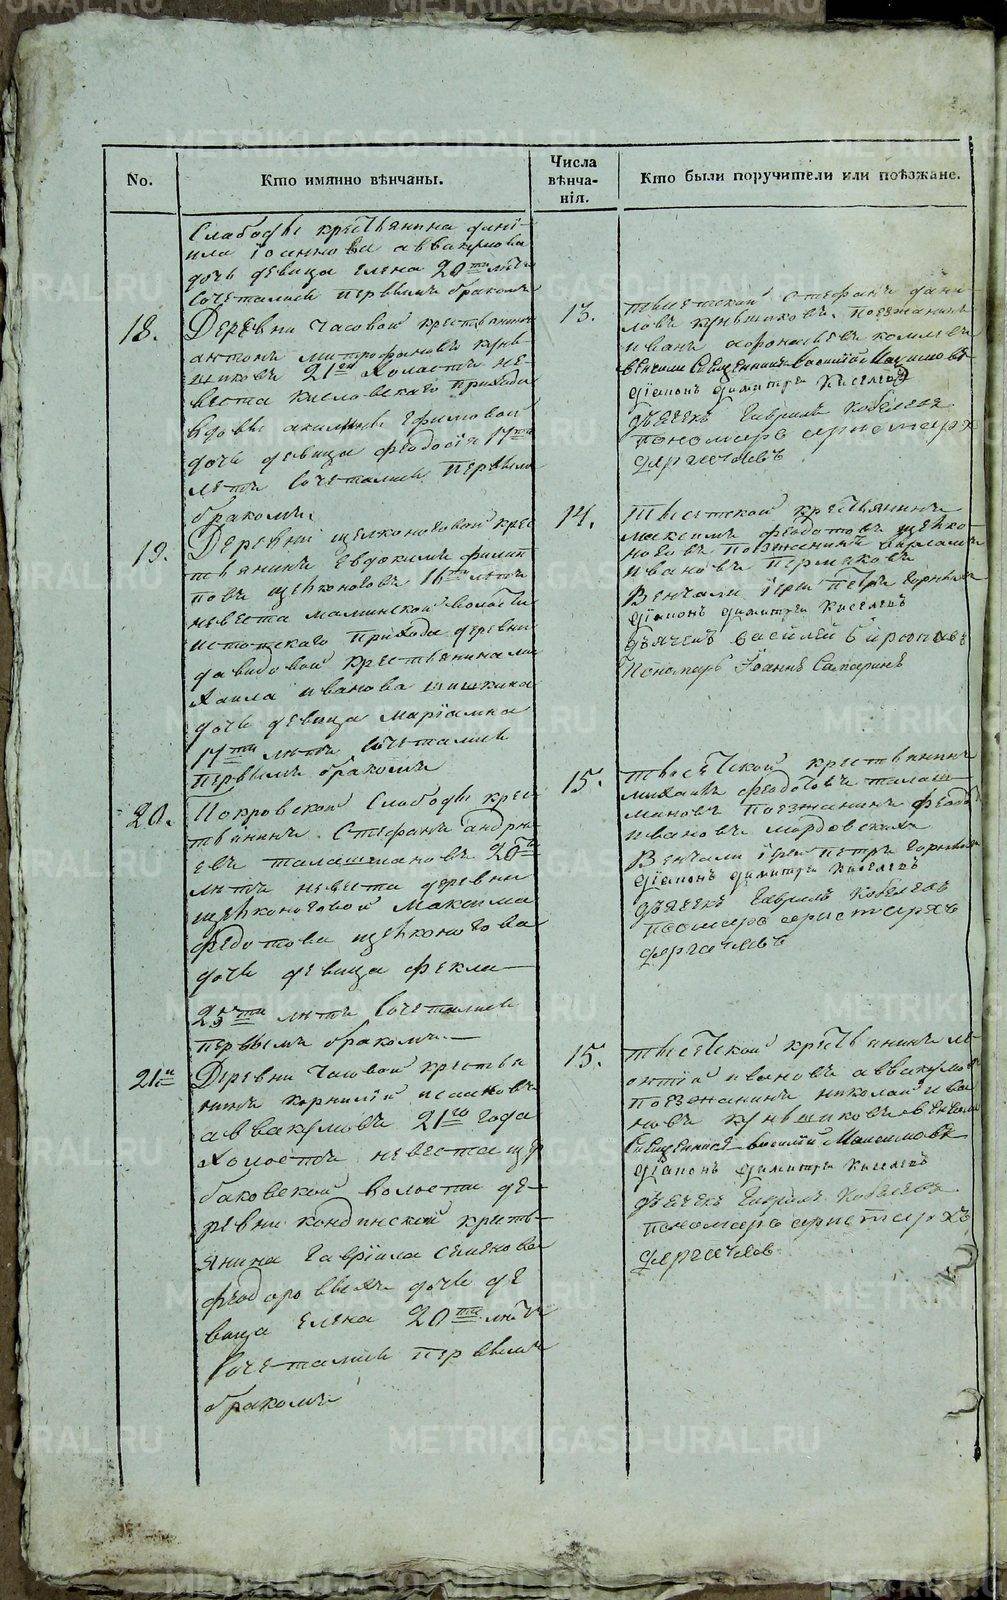 No.
Кто имянно вѣнчаны.
Числа
вѣнча-
нія.
Кто были поручители или поѣзжане.
Слабоды крестьянина дані-
ила іоаннова аввакумова
дочь девица елена 20ти летъ
сочетались первымъ бракомъ
18.
Деревни Часовой крестьянинъ
антонъ митрофановъ кунь-
щиковъ 21го холостъ не-
веста кисловскаго прихода
вдовы акилины ефимовой
дочь девица феодосія 17ти
летъ сочетались первымъ
бракомъ.
13.
тыгетской стефанъ дани-
ловъ куньщиковъ. поезжанинъ
иванъ афонасьевъ
венчали Священникъ василий Максимовъ
діаконъ димитри Киселевъ
дьячекъ Гаврилъ Кобелевъ
пономарь аристархъ
дергачевъ
19.
Деревни щелконоговой крес
тьянинъ Евдокимъ филип
повъ щелконоговъ 16ти летъ
невеста маминской волости
истокскаго прихода деревни
давыдовой крестьянина ми
хаила иванова шишкина
дочь девица маріамна
17ти летъ сочетались
первымъ бракомъ
14.
крестьянинъ
максимъ федотовъ щелко-
ноговъ поезжанинъ варламъ
ивановъ пермяковъ
Венчали іерей Петръ
діаконъ димитри Киселевъ
дьячекъ василей
Пономарь Іоаннъ Сапаринъ
20.
Покровской Слабоды крес-
тьянинъ Стефанъ андре
евъ талашмановъ 20ти
летъ невеста деревни
щелконоговой Максима
федотова щелконогова
дочь девица фекла
25ти летъ Сочетались
первымъ бракомъ.
15.
крестьянинъ
михаилъ федотовъ талаш-
мановъ поезжанинъ феодоръ
ивановъ мордовскихъ
Венчали іерей петръ
діаконъ димитри Киселевъ
дьячекъ Гаврилъ Кобелевъ
пономарь аристархъ
дергачевъ
21й
Деревни Часовой крестья
нинъ корнилій исааковъ
аввакумовъ 21го года
холостъ невеста щер
баковской волости де-
ревни кондинской кресть-
янина Гавріила семенова
дочь де
вица Елена 20ти летъ
Сочетались первымъ
бракомъ
15.
крестьянинъ ле-
онтій ивановъ аввакумовъ
поезжанинъ николай ива
новъ куньщиковъ венчали
Священникъ василій Максимовъ
діаконъ димитри Киселевъ
дьячекъ Гаврилъ Кобелевъ
пономарь аристархъ
дергачевъ
METRIKI.GASO-URAL.RU